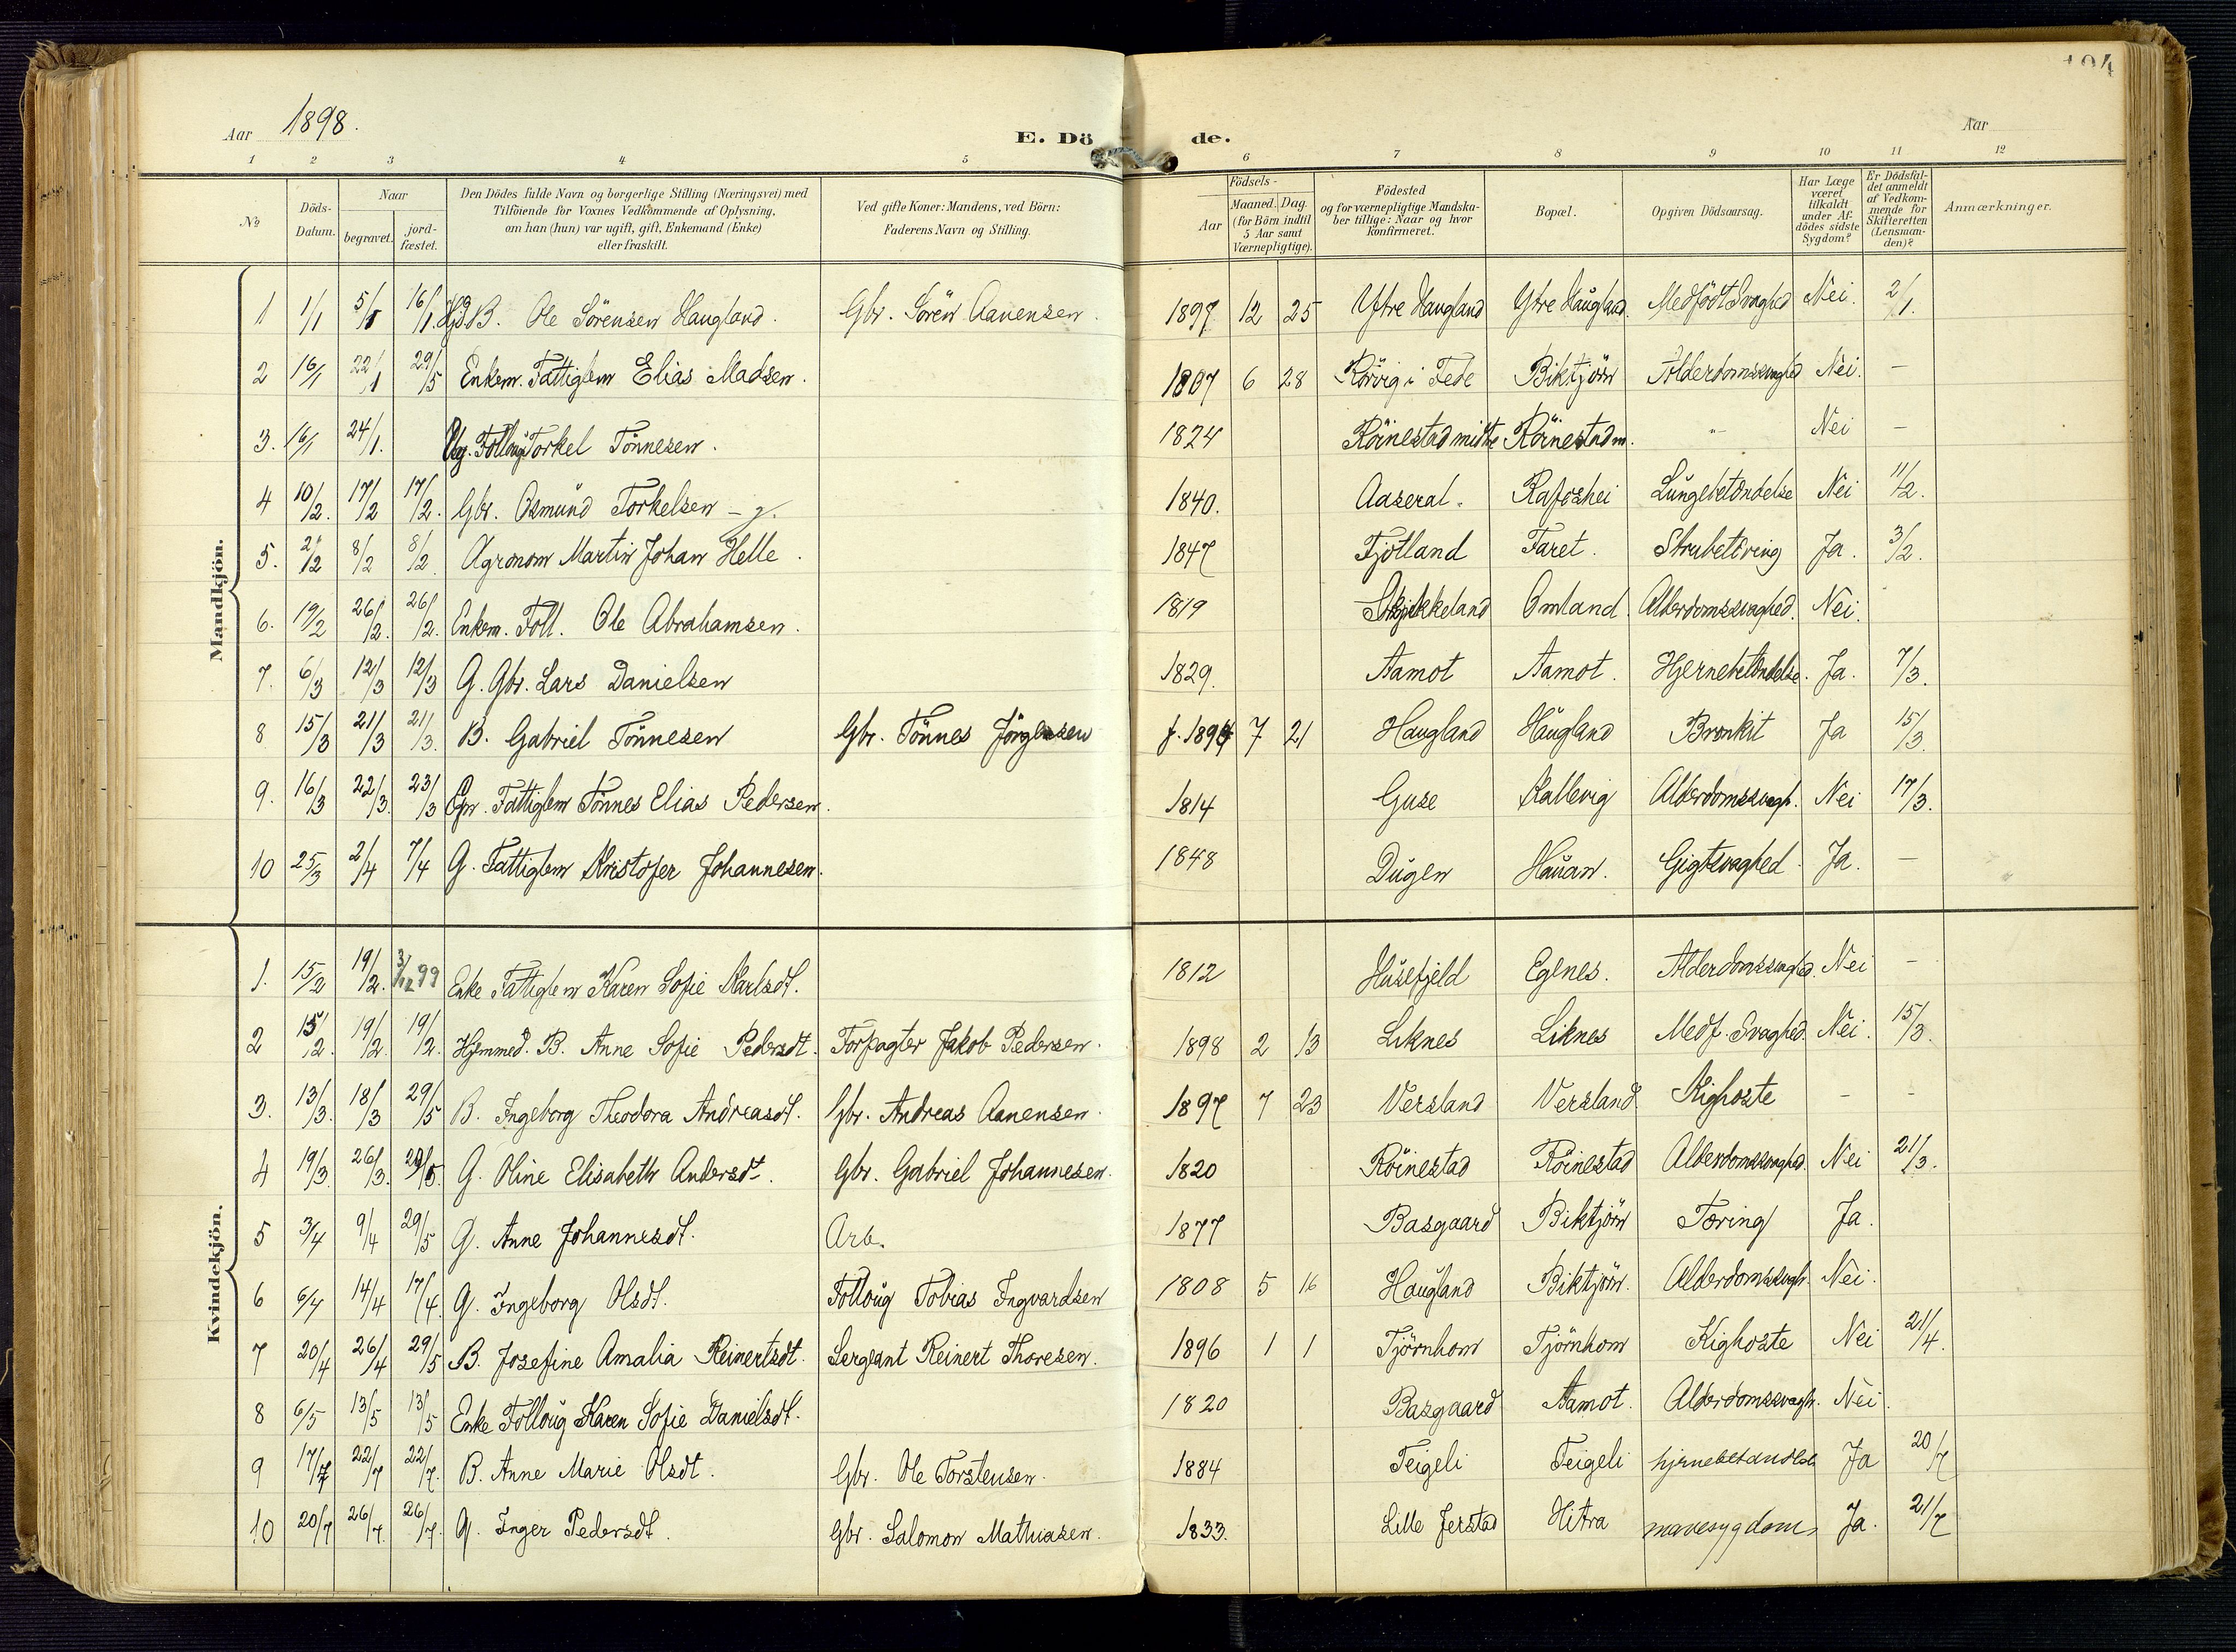 Aar 1898.
E. Dö de.
Aar
1 2 3 4 5 6 7 8 9 10 11 12
No
Döds-Datum.
Naar
begravet.
jord-fæstet.
Den Dödes fulde Navn og borgerlige Stilling (Næringsvei) med
Tilföiende for Voxnes Vedkommende af Oplysning,
om han (hun) var ugift, gift, Enkemand (Enke)
eller fraskilt.
Ved gifte Koner: Mandens, ved Börn:
Faderens Navn og Stilling.
Födsels-
Aar
Maaned. Dag.
(for Börn indtil
5 Aar samt
Værnepligtige).
Födested
og for værnepligtige Mandska-
ber tillige: Naar og hvor
konfirmeret.
Bopæl.
Opgiven Dödsaarsag.
Har Læge
været
tilkaldt
under Af-
dödes sidste
Sygdom?
Er Dödsfal-
det anmeldt
af Vedkom-
mende for
Skifteretten
(Lensman-
den)?
Anmærkninger.
Mandkjön.
1 1/1 5/1 16/1 Hjd. B. Ole Sörensen Haugland. Gbr. Sören Aanensen. 1897 12 25 Ytre Haugland Ytre Haugland. Medfödt Svaghed Nei. 2/1.
2 16/1 22/1 29/5 Enkem. Fattiglem Elias Madsen. 1807 6 28 Rörvig i Fede Biktjörn Alderdomssvaghed Nei. —
3. 16/1 24/1. Ug. Follaug Torkel Tönnesen. 1824 Röinestad midtre Röinestad m. " Nei —
4 10/2. 17/2 17/2. Gbr. Osmund Torkelsen – g. 1840. Aaseral. Rafoshei Lungebetændelse Nei 11/2.
5. 2/2 8/2 8/2. Agronom Martin Johan Helle. 1847 Fjotland Faret. Strubetæring Ja. 3/2.
6. 19/2 26/2. 26/2. Enkem. Föll. Ole Abrahamsen. 1819 Skjekkeland Omland. Alderdomssvaghed. Nei.
7. 6/3 12/3 12/3 G. Gbr. Lars Danielsen 1829. Aamot Aamot. Hjernebetændelse. Ja. 7/3.
8 15/3 21/3 21/3. B. Gabriel Tönnesen Gbr. Tönnes Jörgensen f. 1894 7 21 Haugland Haugland Bronkit Ja 15/3.
9. 16/3 22/3. 23/3 Fattiglem Tönnes Elias Pedersen. 1814 Guse Kallevig Alderdomssvagh. Nei 17/3.
10 25/3 2/4 7/4 G. Fattiglem Kristofer Johannesen. 1848 Dugen Hauan. Gigtsvaghed. Ja. —
Kvindekjön.
1. 15/2 19/2. 3/12 99 Enke Fattiglem Karen Sofie Karlsdt. 1812 Husefjeld Egenes. Alderdomssvaghed. Nei —
2 15/2. 19/2. 19/2. Hjemmed. B. Anne Sofie Pedersdt. Forpagter Jakob Pedersen. 1898 2 13 Liknes Liknes Medf. Svaghed. Nei. 15/3.
3. 13/3. 18/3 29/5 B. Ingeborg Theodora Andreasdt. Gbr. Andreas Aanensen. 1897 7 23 Versland Versland Kighoste – –
4 19/3. 26/3. 29/5. G. Oline Elisabeth Andersdt. Gbr. Gabriel Johannesen. 1820 Röinestad Röinestad Alderdomssvaghed. Nei 21/3.
5 3/4 9/4 29/5 G. Anne Johannesdt. Arb. 1877 Basgaard Biktjörn Tæring Ja.
6 6/4 14/4 17/4. G. Ingeborg Olsdt. Follaug Tobias Ingvardsen 1808 5 16 Haugland Biktjörn. Alderdomssvagh. Nei.
7 20/4 26/4 29/5 B. Josefine Amalia Reinertsdt. Sergeant Reinert Thoresen. 1896 1 1 Tjörnhom Tjörnhom Kighoste Nei 21/4.
8 6/5 13/5 13/5 Enke Follaug Karen Sofie Danielsdt. 1820 Basgaard Aamot. Alderdomssvagh. Nei.
9 17/7 22/7 22/7. B. Anne Marie Olsdt. Gbr. Ole Torstensen. 1884 Teigeli Teigeli hjernebetændelse Ja 20/7
10 20/7 26/7 26/7. G. Inger Pedersdt. Gbr. Salomon Mathiasen. 1833. Lille Jerstad Hitra mavesygdom Ja. 21/7